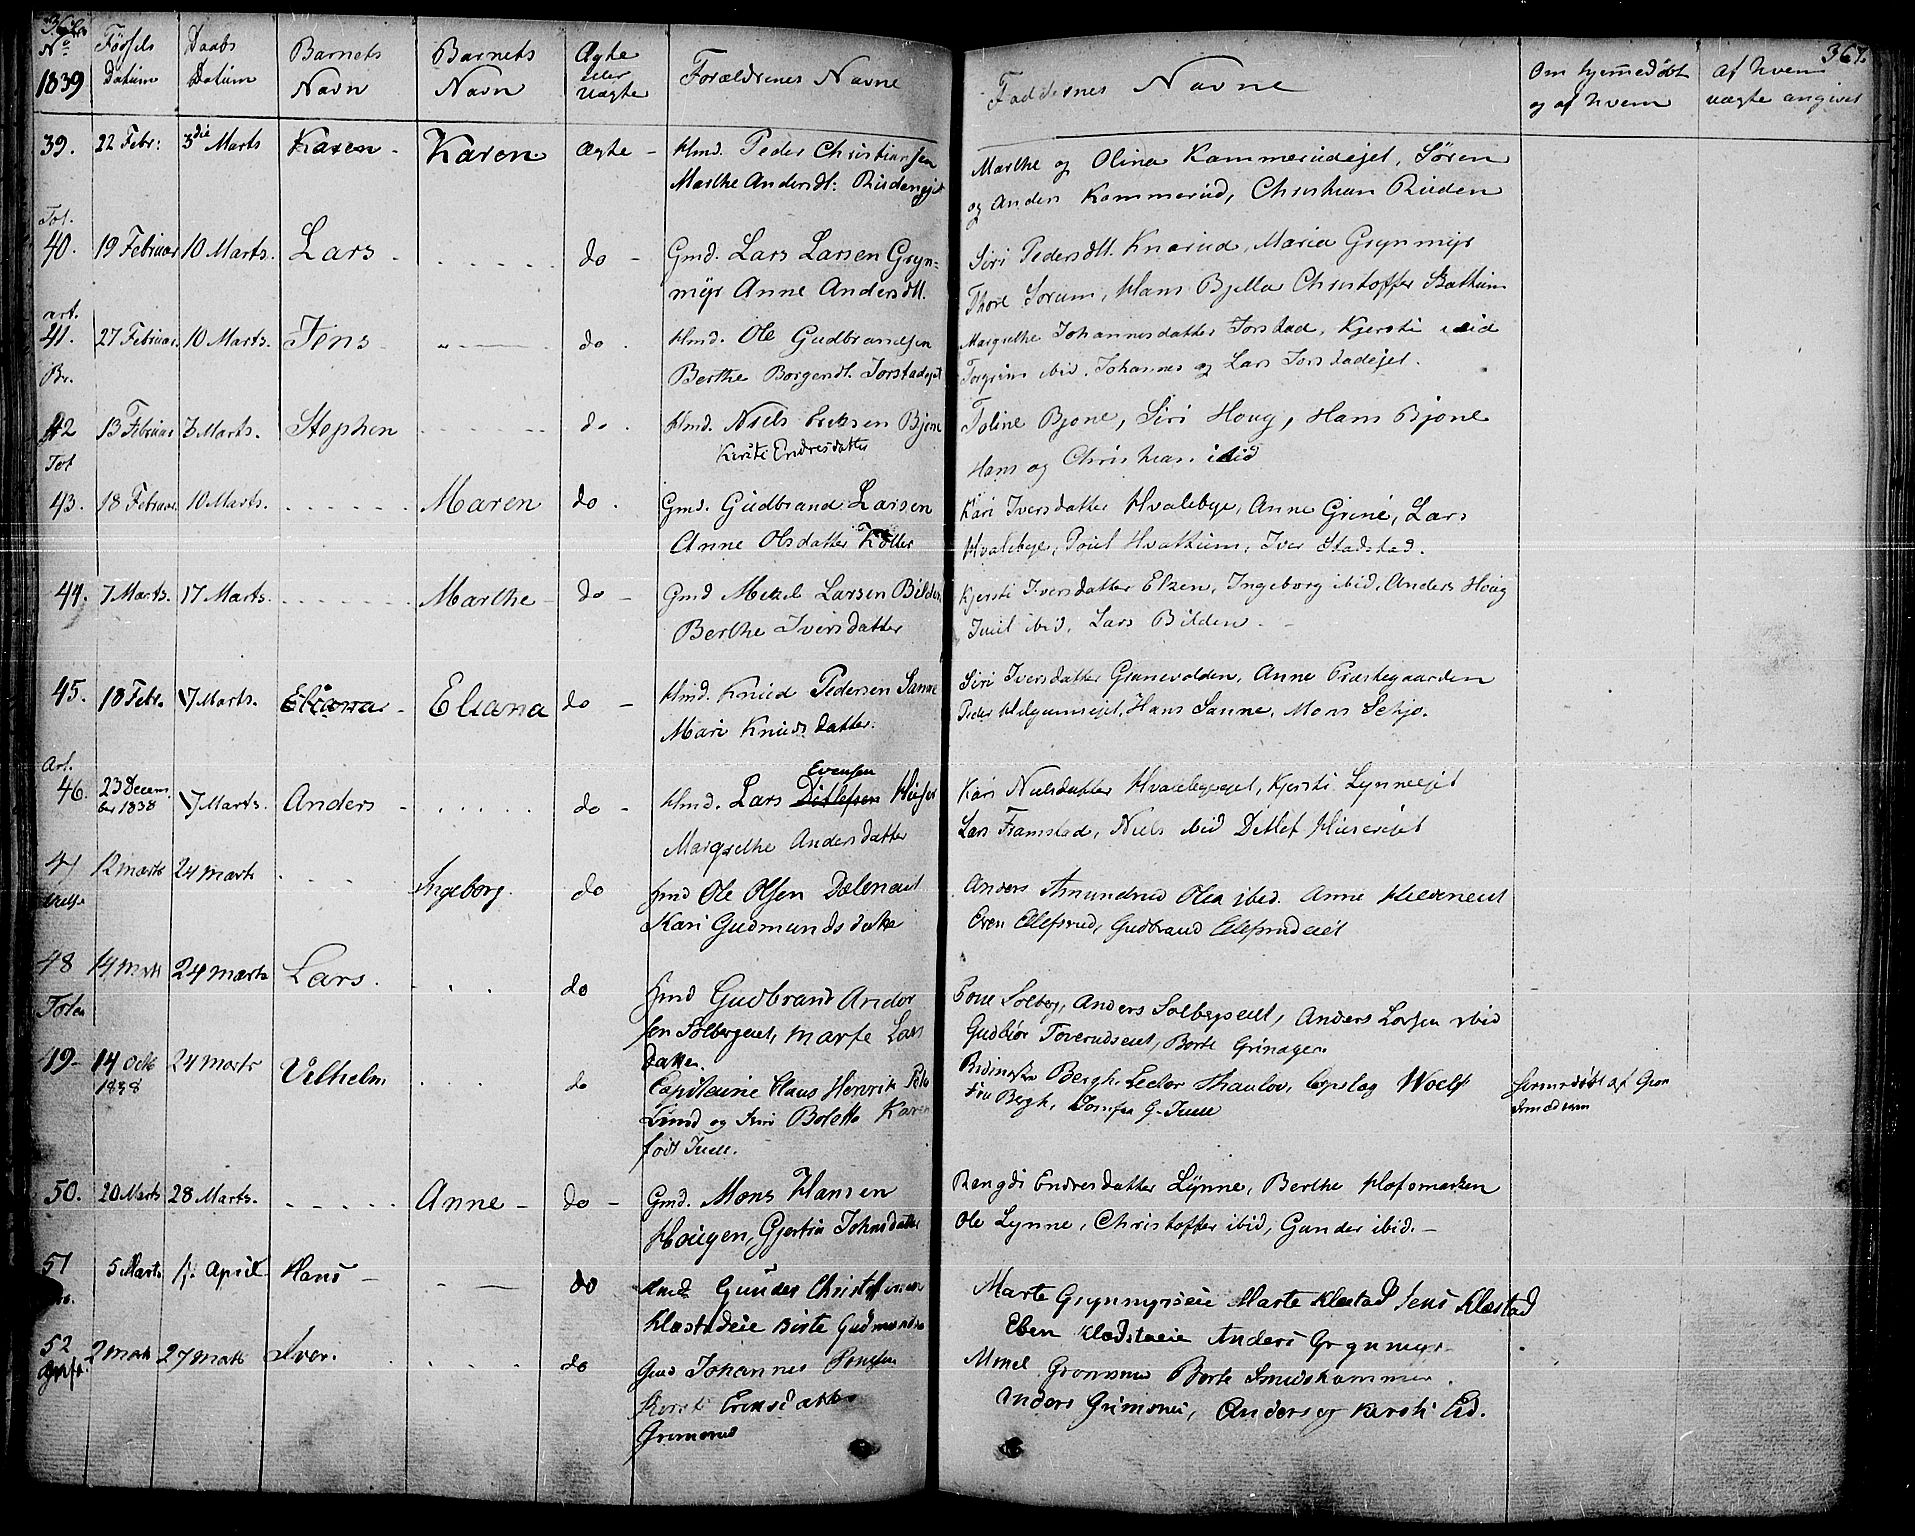 No Fødsels Daabs Barnets Barnets Ægte Forældrenes Navne
1839 Datum Datum Navn Navn eller uægte
Faddernes Navne Om hjemmedøbt og af hvem Af hvem uægte angivet
367.
39. 22 Febr: 3die Marts Karen - Karen Ægte - Hmd. Peder Christiansen
Marthe Andersdt: Rudenejet
Marthe og Olina Kammerudejet, Søren
og Anders Kammerud, Christian Ruden
Tot.
40. 19 Februar 10 Marts. Lars - do - Gmd. Lars Larsen Gryn=
myr Anne Andersdtt.
Siri Pedersdtt. Knarud, Maria Grynmyr
Thore Sorum, Hans Bjella Christoffer
art.
41. 27 Februar 10 Marts. Jens - do. Hmd. Ole Gudbrandsen
Berthe Borgersdt. Torstadejet
Margrethe Johannesdatter Torstad, Kjersti ibid
Torgrim ibid. Johannes og Lars Torstadejet.
Br.
42 13 Februar 3 Marts. Stephen do. Hmd. Niels Eriksen Bjone
Kirsti Endresdatter
Toline Bjone, Siri Houg, Hans Bjone
Hans og Christian ibid
Tot
43. 18 Februar 10 Marts. Maren do. Gmd. Gudbrand Larsen
Anne Olsdatter Koller
Kari Iversdatter Hvalebye, Anne Grine, Lars
Hvalebye, Poul Hvattum, Iver Stadstad.
44. 7 Marts. 17 Marts. Marthe - do - Gmd Mikel Larsen Bilden
Berthe Iversdatter
Kjersti Iversdatter Elsen, Ingeborg ibid, Anders Houg
Juul ibid, Lars Bilden -
45. 18 Febr. 17 Marts. Eliana - Eliana do - Hmd. Knud Pedersen Sanne
Mari Knudsdatter.
Siri Iversdatter Granevolden, Anne Præstegaarden
Peder Helgumsejet, Hans Sanne, Mons
Art.
46. 23 Decem ber 1838 17 Marts. Anders - do - Hmd. Lars Ditlefsen Evensen
Margrethe Andersdatter
Kari Nielsdatter Hvalebyejet, Kjersti Lynneejet
Lars Framstad, Niels ibid Ditlef Huserejet
47 12 Marts 24 Marts Ingeborg. do Hmd Ole Olsen
Kari Gudmundsdatter
Anders Amundrud Olea ibid. Anne
Even Ulsrud, Gudbrand
48 14 Marts 24 Marts Lars. do Hmd Gudbrand Ander
sen Solbergeiet, Marte Lars
datter.
Poul Solberg, Anders Solbergseiet, Anders Larsen ibid
Gudbiør Toverudseiet, Berte Grinager.
Toten
49 - 14 Octb 1838 24 Marts Vilhelm do Capitaine Claus Henrik
Lund og Fru Bolette Karen
født Juell.
Bergh. Lector Thaulov, Woelf
Fru Bergh, Jomfru G. Juell
hjemmedøbt af
50. 20 Marts 28 Marts. Anne - do - Gmd. Mons Hansen
Hougen, Gjertru Johnsdatter
Rangdi Endresdatter Lynne, Berthe
Ole Lynne, Christoffer ibid, Gunder ibid. -
51 5 Marts 1. April Hans - do Hmd. Gunder Christophersen
Klæstadeie Birte Gudmunds
Marte Grynmyrseie Marte Klæstad Jens Klæstad
Eben Klæstadeie Anders Grynmyr
52 2 Marts 27 Marts Iver. do Gmd Johannes Poulsen
Kersti Ericsdatter
Grimsrud
Mikel Grimsrud Berte Smedshammer
Anders Grimsrud, Anders og Kersti Eid.